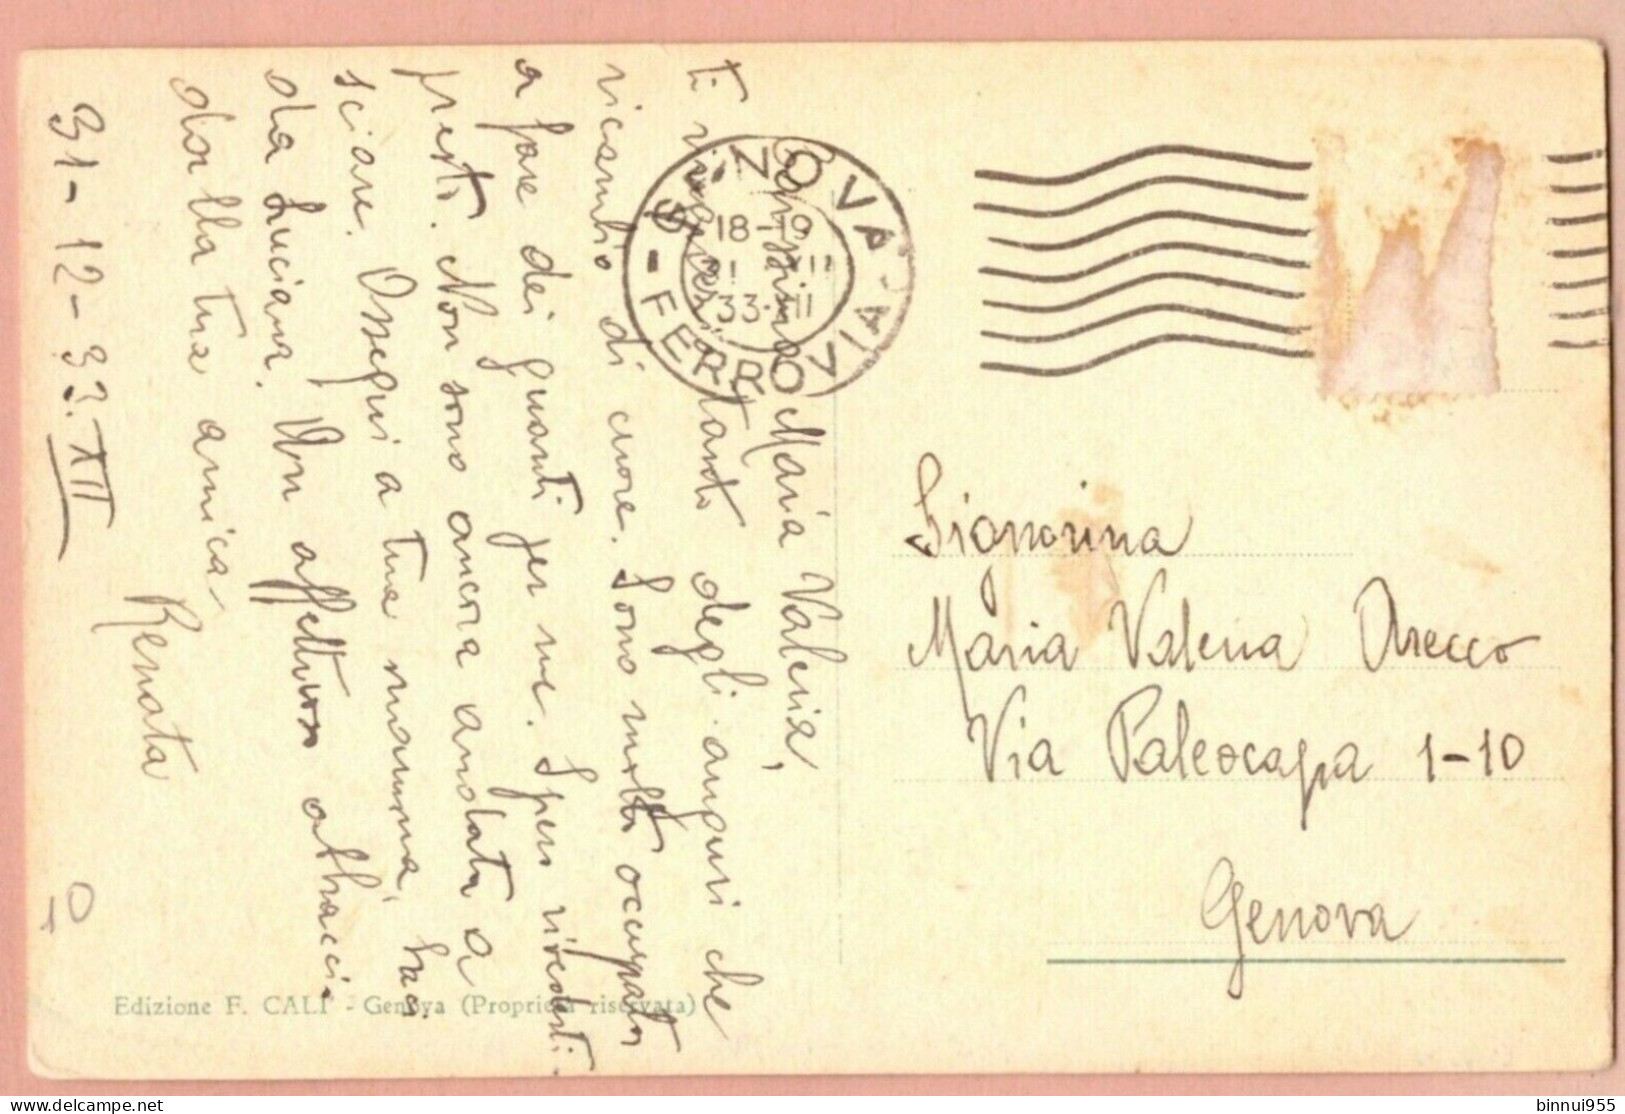 Carissima Maria Valeria,
ti ringrazio tanto degli auguri che
ricambio di cuore. Sono molto occupata
a fare dei guanti per me. Spero rivederti
presto. Non sono ancora andata a
sciare. Ossequi a tua mamma, baci
da Luciana. Un affettuoso abbraccio
dalla tua amica
Renata
31-12-33.XII
NOVA
18-19
33-XII
FERR
Signorina
Maria Valeria Arecco
Via Paleocapa 1-10
Genova
Edizione F. CALI' - Genova (Proprietà riservata)
delcampe.net
binnui955